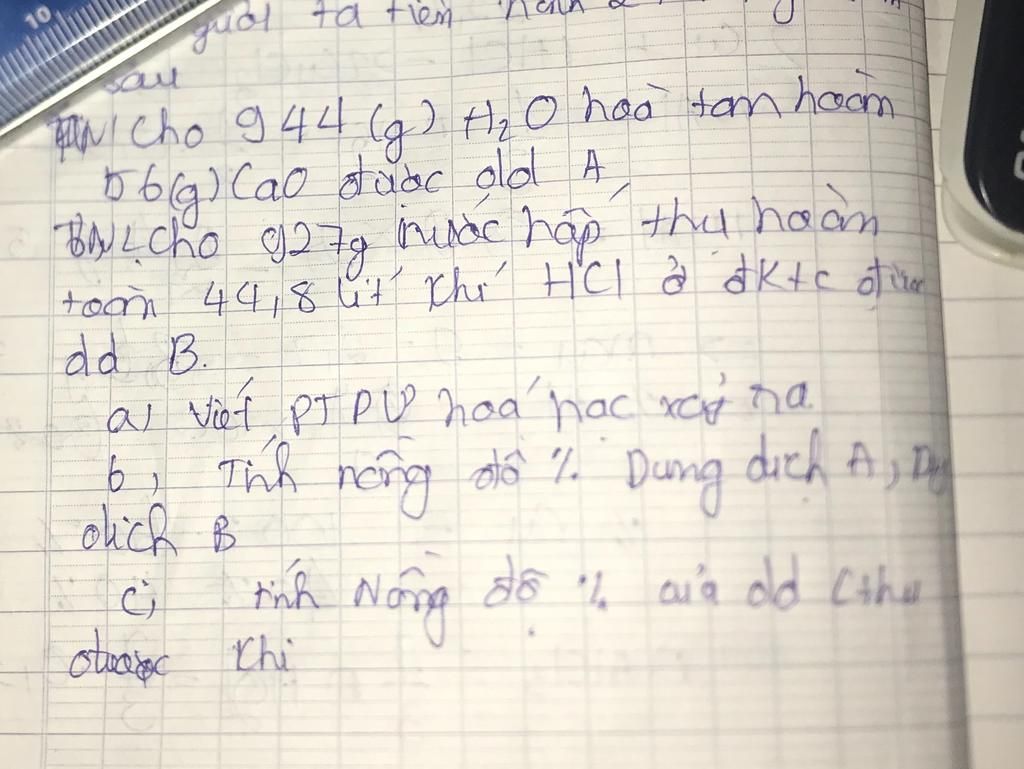 10
người ta tiến hành
sau
TN1 Cho 944 (g) H₂O hoà tan hoàn
56(g) CaO được dd A
TN2. Cho 927g nước hấp thụ hoàn
toàn 44,8 lít khí HCl ở đktc được
dd B.
a, Viết PTPƯ hoá học xảy ra.
b, Tính nồng độ % Dung dịch A,
dịch B
c, tính Nồng độ % của dd C thu
được khi